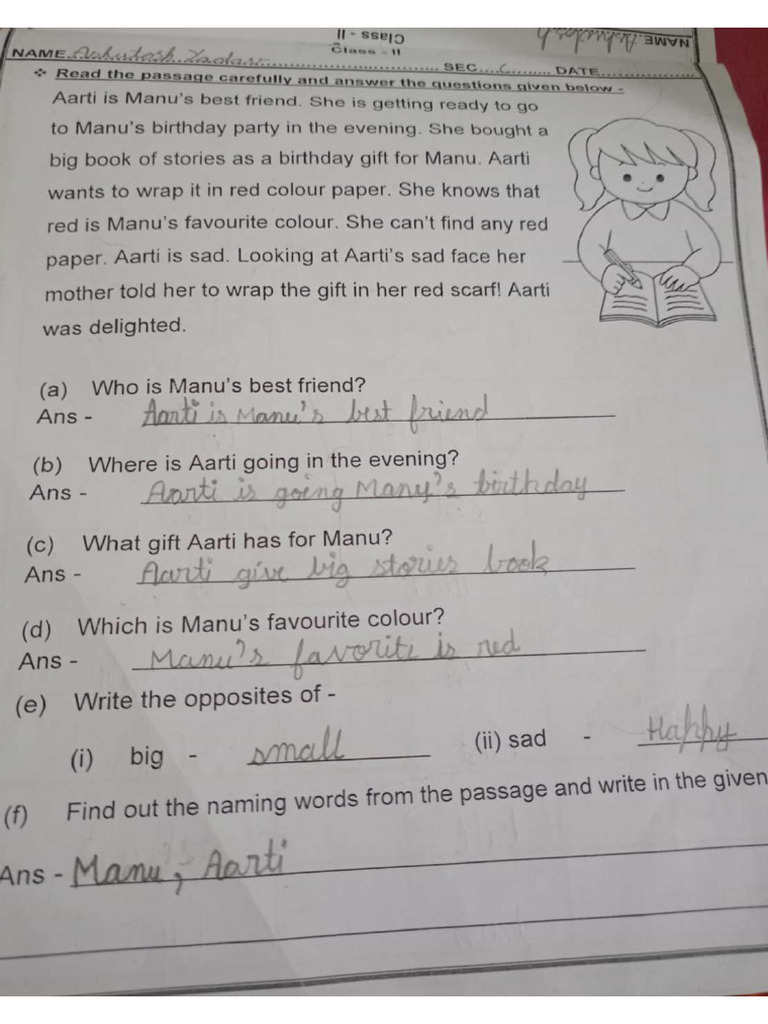 Class - II
NAME. Ashutosh
Class - II
NAME. Ashutosh Yadav SEC. C DATE
❖ Read the passage carefully and answer the questions given below -
Aarti is Manu's best friend. She is getting ready to go
to Manu's birthday party in the evening. She bought a
big book of stories as a birthday gift for Manu. Aarti
wants to wrap it in red colour paper. She knows that
red is Manu's favourite colour. She can't find any red
paper. Aarti is sad. Looking at Aarti's sad face her
mother told her to wrap the gift in her red scarf! Aarti
was delighted.
(a) Who is Manu's best friend?
Ans - Aarti is Manu's best friend
(b) Where is Aarti going in the evening?
Ans - Aarti is going Manu's birthday
(c) What gift Aarti has for Manu?
Ans - Aarti give big stories book
(d) Which is Manu's favourite colour?
Ans - Manu's favorite is red
(e) Write the opposites of -
(i) big - small (ii) sad - Happy
(f) Find out the naming words from the passage and write in the given
Ans - Manu, Aarti